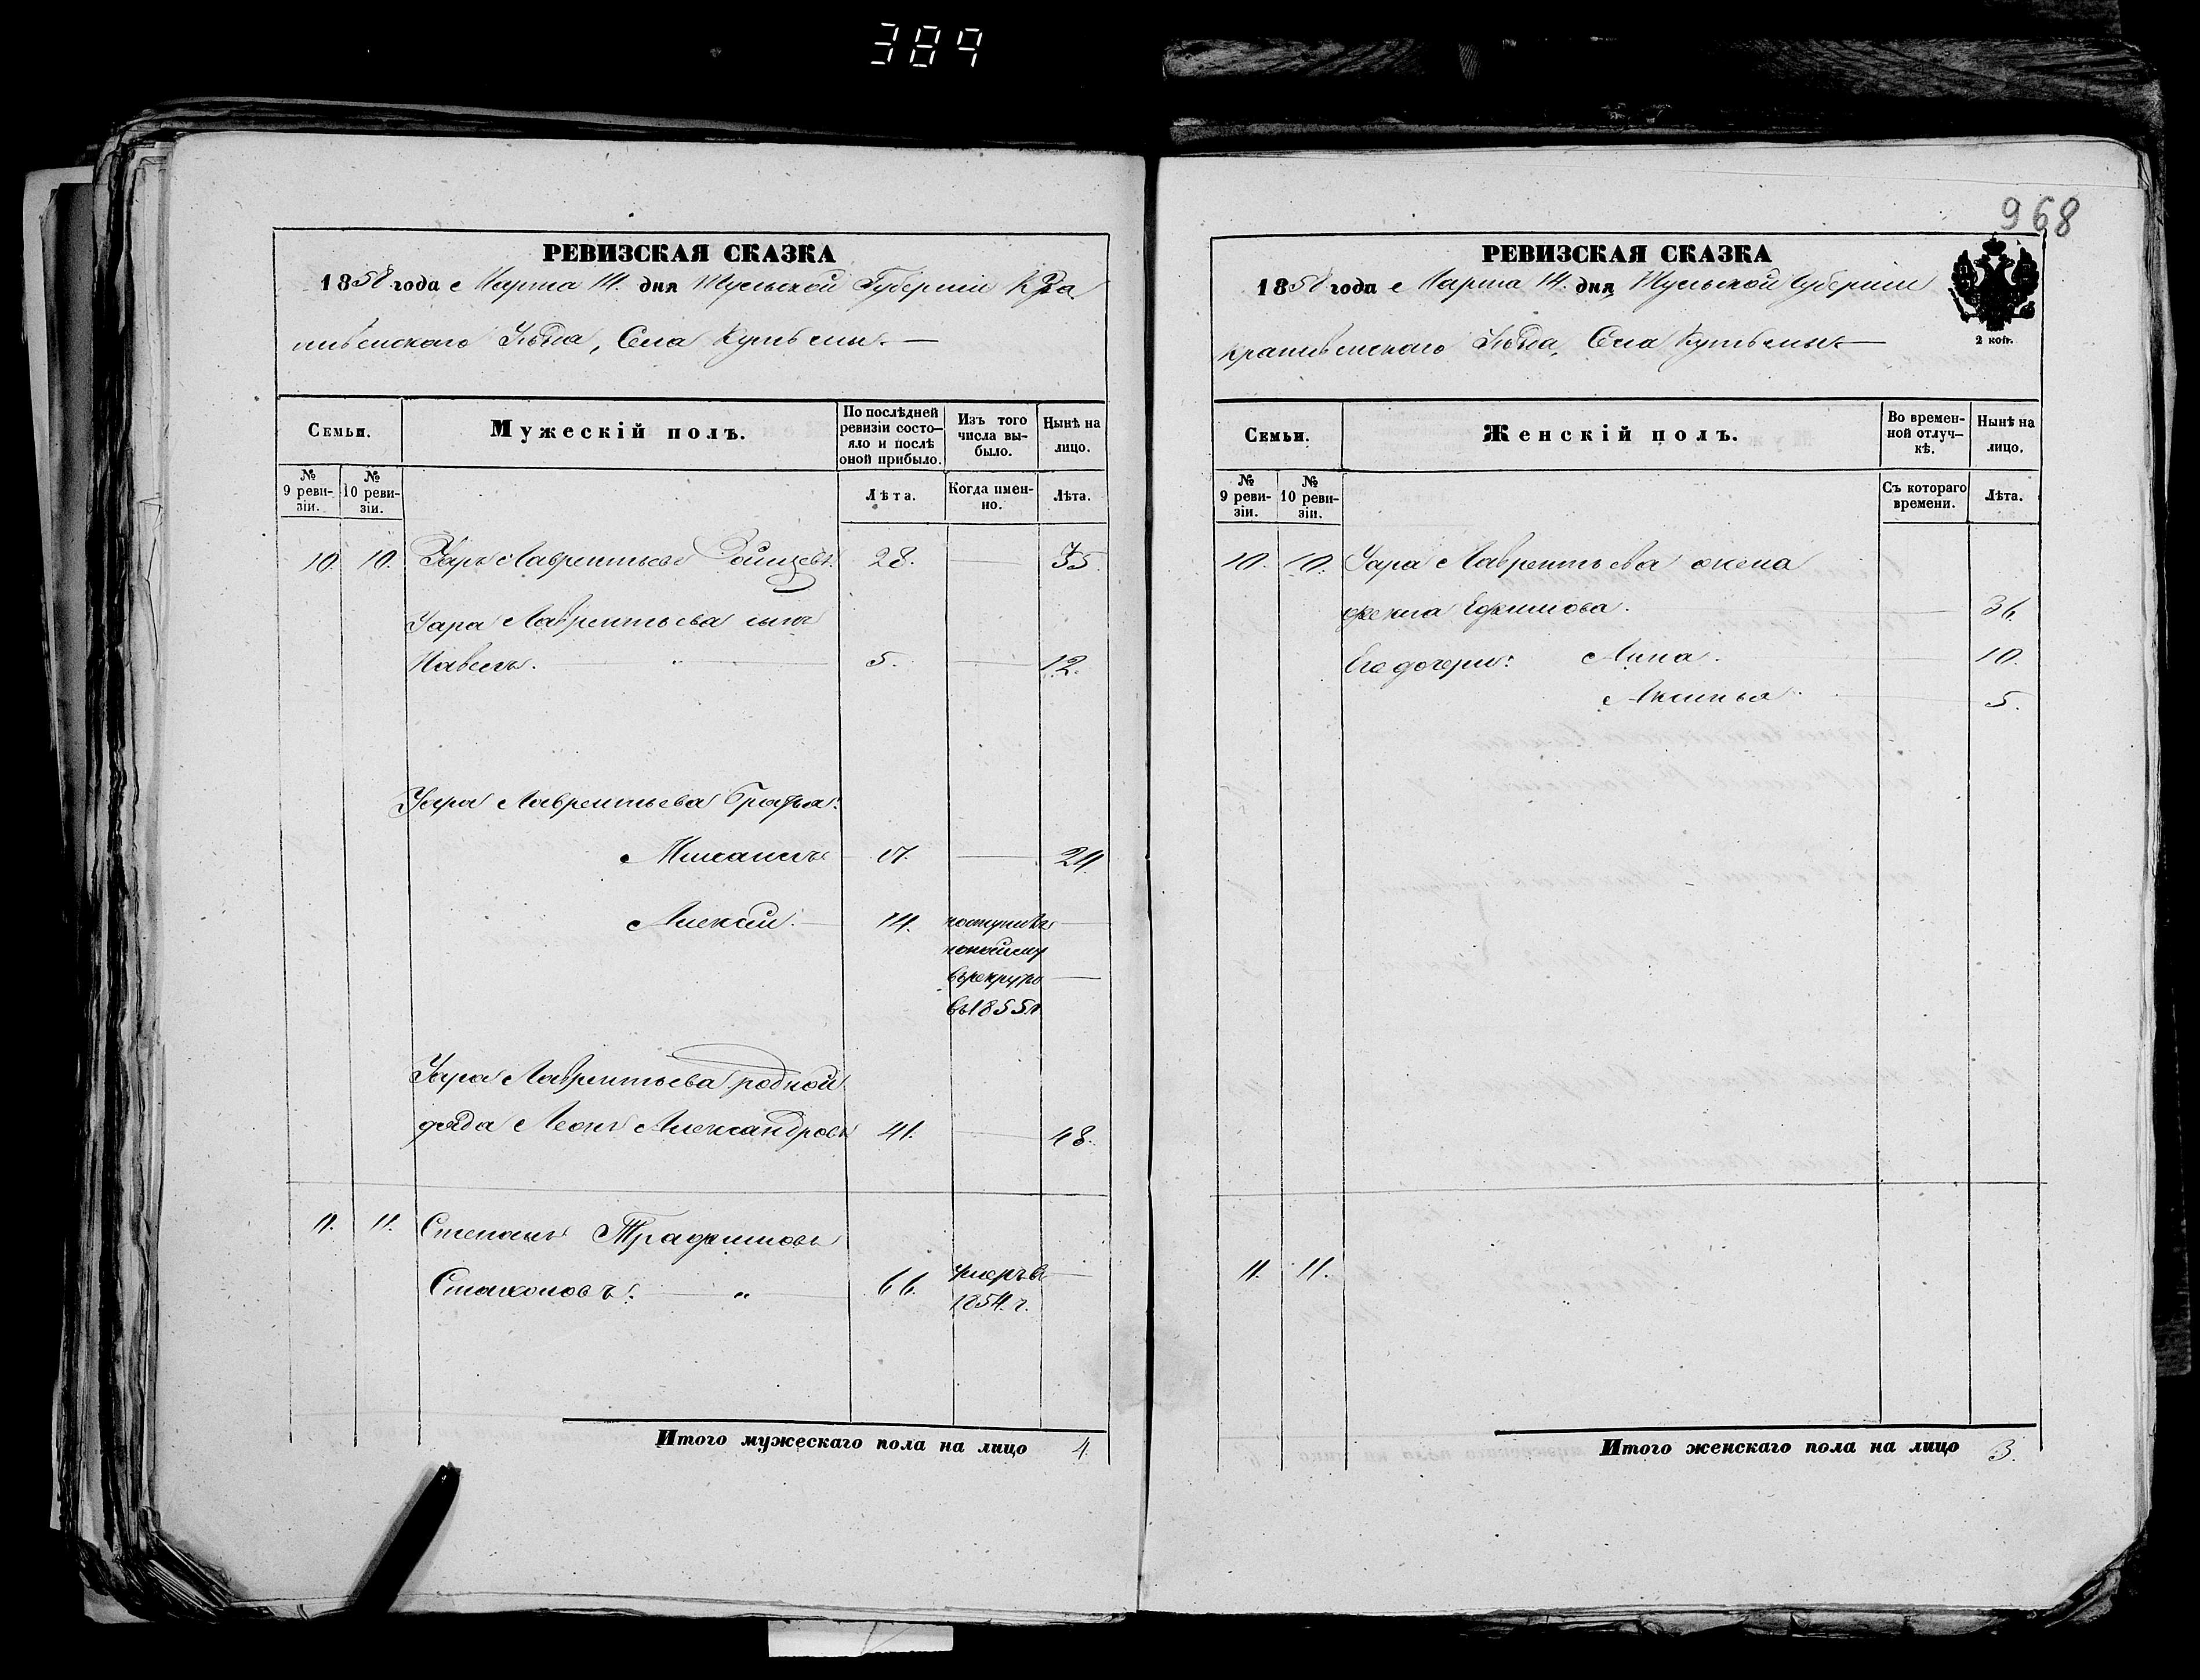 389
968
РЕВИЗСКАЯ СКАЗКА
1858 года Марта 14. дня Тульской Губернiи Кра
пивенскаго Уѣзда, Села
Семьи.
Мужескiй полъ.
По послѣдней ревизiи состо-яло и послѣ оной прибыло.
Изъ того числа вы-было.
Нынѣ на лицо.
№ 9 реви-зiи.
№ 10 реви-зiи.
Лѣта.
Когда имен-но.
Лѣта.
10. 10. Уаръ Лаврентьевъ 28. — 35.
Уара Лаврентьева сынъ
Павелъ. — " — 5. — 12.
Уара Лаврентьева братья:
Михаилъ 17. — 24
Алексѣй. — 14. поступилъ —
въ рекруты —
въ 1855 г.
Уара Лаврентьева родной
дядя Леонъ Александровъ 41. — 48.
11. 11. Степанъ Трафимовъ
66. умеръ въ —
1854. г.
Итого мужескаго пола на лицо 4.
РЕВИЗСКАЯ СКАЗКА
1858 года Марта 14. дня Тульской Губернiи
Крапивенскаго Уѣзда, Села
2 коп.
Семьи.
Женскiй полъ.
Во времен-ной отлуч-кѣ.
Нынѣ на лицо.
№ 9 реви-зiи.
№ 10 реви-зiи.
Съ котораго времени.
Лѣта.
10. 10. Уара Лаврентьева жена
Фекла Ефимова. — 36
Его дочери: Анна. 10.
Аксинья. — 5.
11. 11.
Итого женскаго пола на лицо 3.